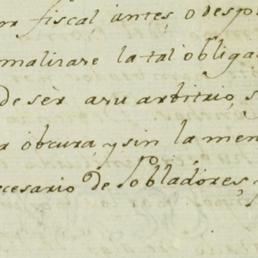 fiscal, antes, o desp
malizare la tal obliga
de sèr a su arbitrio, s
a obscura, y sin la men
cesario de Pobladores,